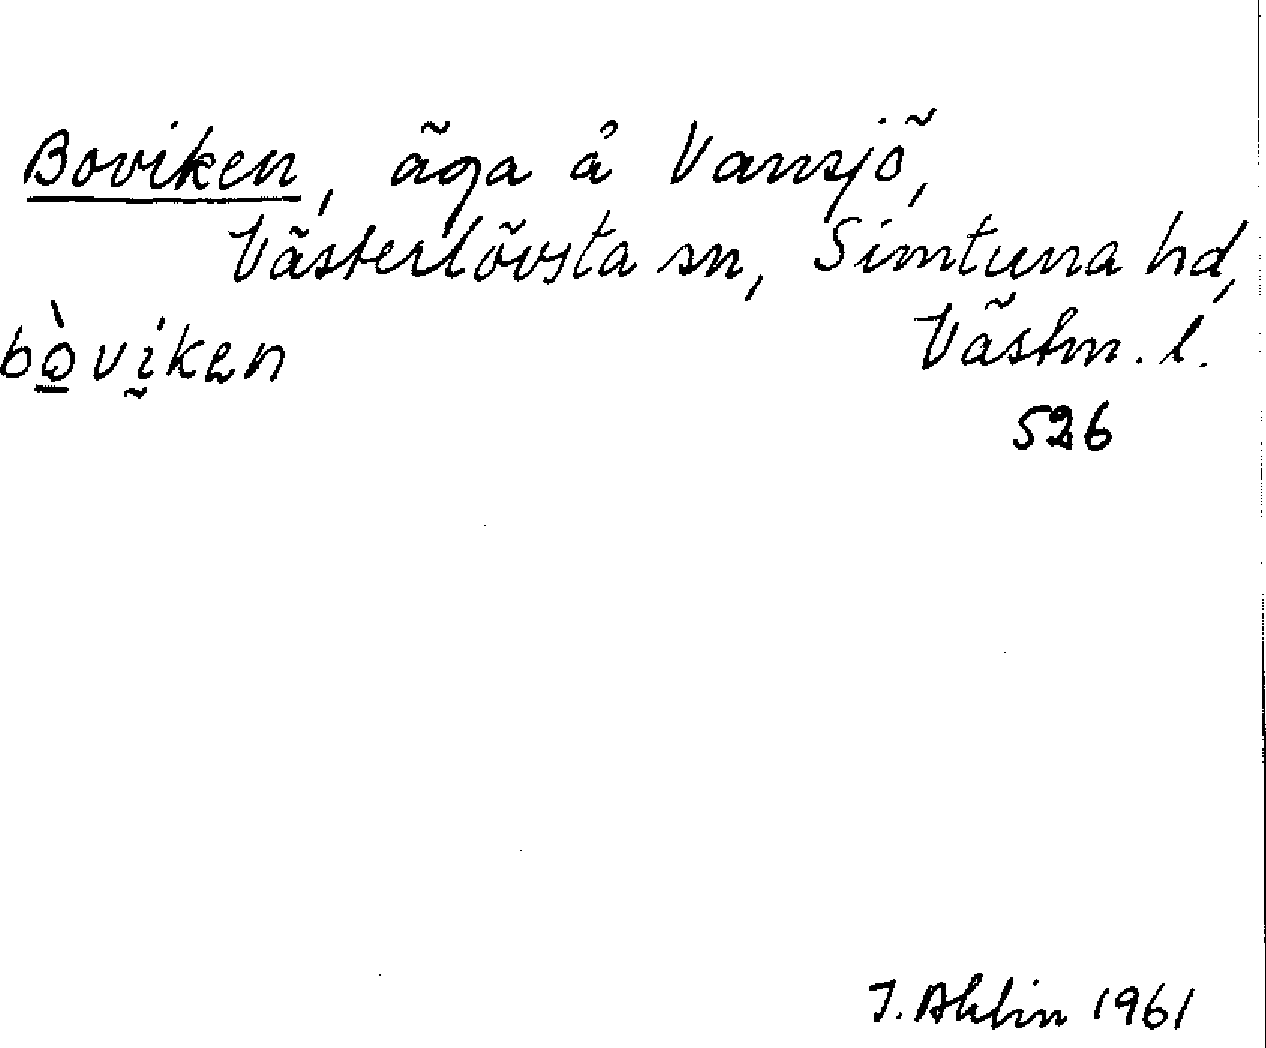 Boviken, äga å Vansjö,
Västerlövsta sn, Simtuna hd,
Västm. l.
bòviken
526
I. Ahlin 1961